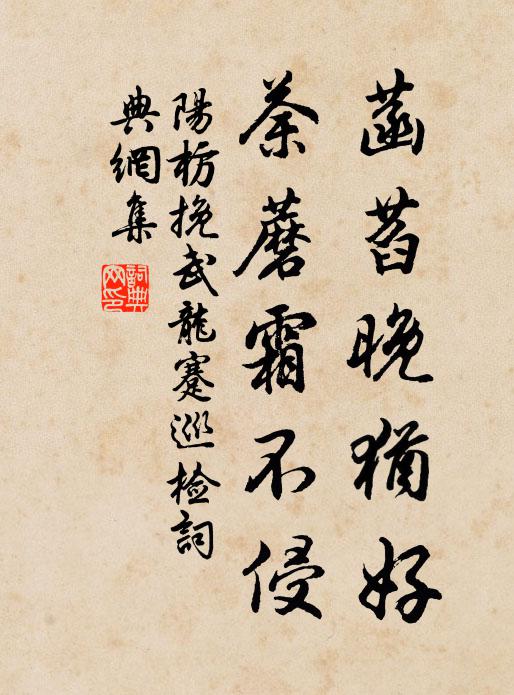 菡萏晚猶好
荼蘑霜不侵
陽枋挽武龍蹇巡檢詞
典網集
詞典
网印